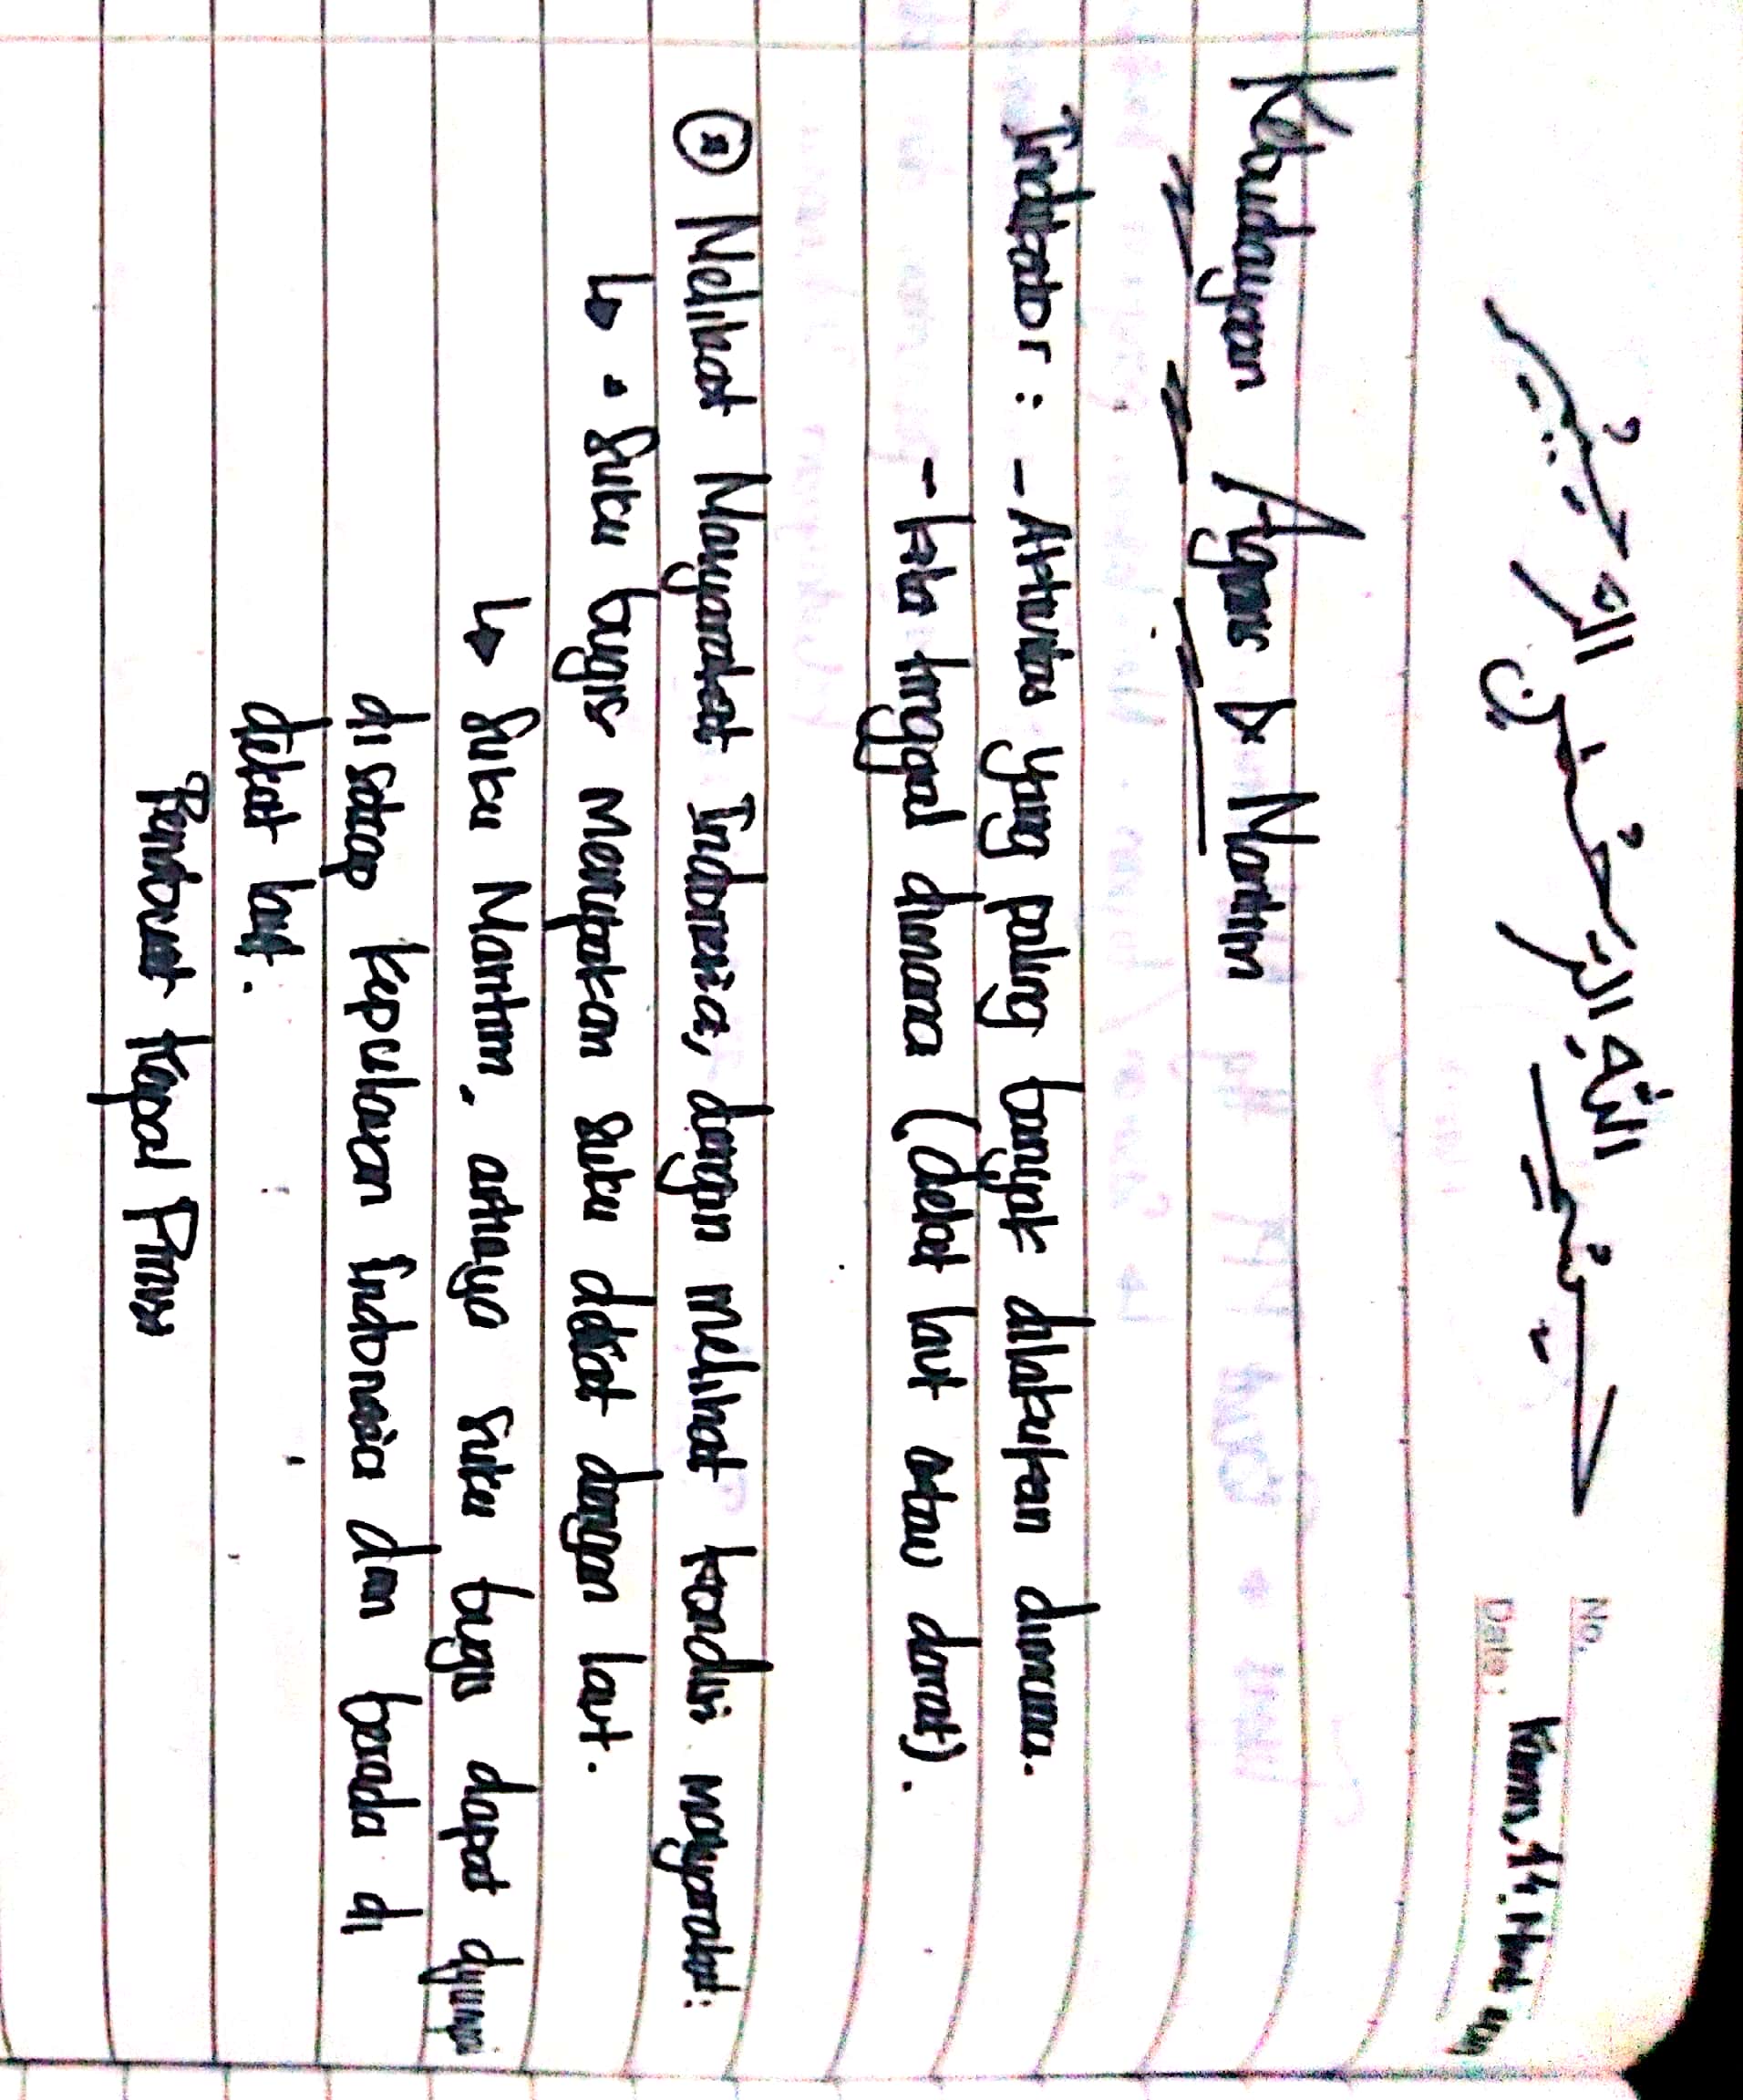 بسم الله الرحمن الرحيم
No.
Date: Kamis, 14,
Kebudayaan Agraris & Maritim
Indikator : - Aktivitas yang paling banyak dilakukan dimana.
- kita tinggal dimana (dekat laut atau darat).
Melihat Masyarakat Indonesia, dengan melihat kondisi masyarakat:
↳ • Suku bugis merupakan suku dekat dengan laut.
↳ Suku Maritim, artinya suku bugis dapat dijumpai
di setiap kepulauan Indonesia dan berada di
dekat laut.
Pembuat kapal Pinisi